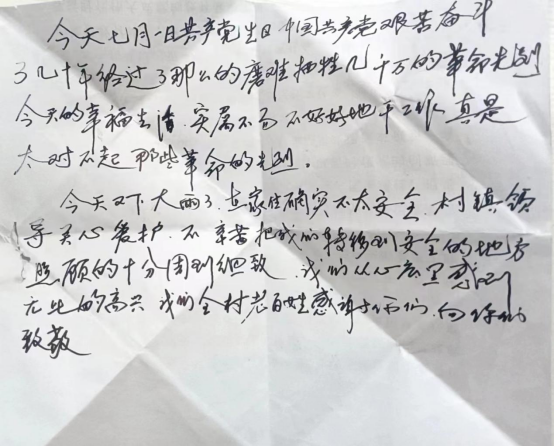 今天七月一日共产党生日 中国共产党艰苦奋斗
了几十年经过了那么的磨难牺牲几千万的革命先烈
今天的幸福生活 实属不易 不好好地干工作 真是
太对不起那些革命的先烈。
今天又下大雨了 在家住确实不太安全 村镇领
导关心爱护 不辛苦把我们转移到安全的地方
照顾的十分周到细致 我们从心底里感到
无比的高兴 我们全村老百姓感谢你们 向你们
致敬